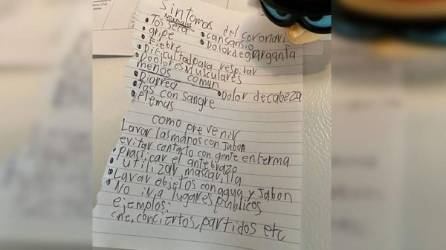 Sintomas del coronavi
• Tos seca • cansansio
• gripe • Dolor de garganta
• Fiebre
• Dificultad para respirar
• Dolores musculares
menos comun
• Diarrea • Dolor de cabeza
• Tos con sangre
• Flemas
como prevenir
Lavar las manos con Jabon
evitar contacto con gente enferma
• practicar el antebrazo
• utilizar mascarilla
• Lavar objetos con agua y Jabon
No ir a lugares publicos
ejemplos,
cine, conciertos, partidos etc